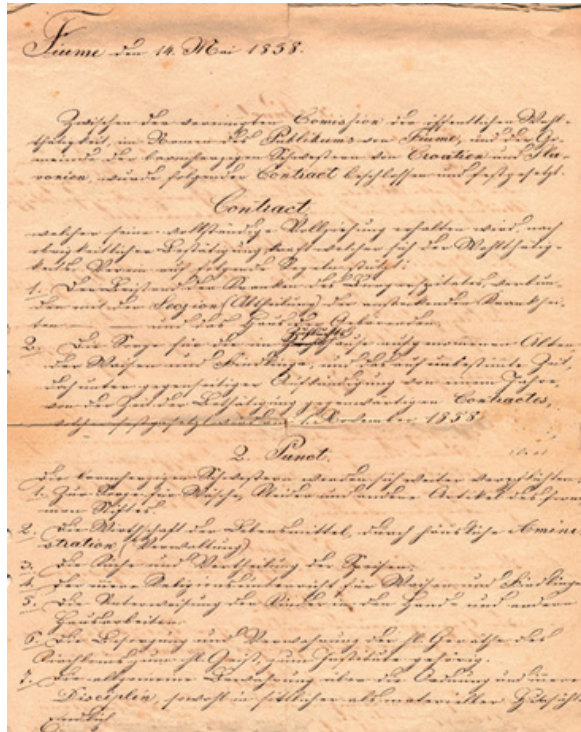 Fiume den 14. Mai 1858.
Zwischen der vereinigten Comission der öffentlichen Wohl-
thätigkeit, im Namen des Publikums von Fiume, und der Ge-
meinde der barmherzigen Schwestern von Croatien und Sla-
vonien, wurde folgender Contract beschlossen und festgesetzt.
Contract,
welcher seine vollständige Vollziehung erhalten wird, nach
obrigkeitlicher Bestätigung, kraft welcher sich der Wohlthätig-
keits Verein auf folgende Regeln stützt:
1. Der Beistand der Kranken des Bürgerspitales, verbun-
den mit der Sezion (Abtheilung) der ansteckenden Krankhei-
ten und das Haus der Gebärenden.
2. Die Sorge für die im Hause aufgenommenen Alten
der Waisen und Findlinge, und das auf unbestimmte Zeit,
doch unter gegenseitiger Aufkündigung von einem Jahre,
von der Zeit der Bestätigung gegenwärtigen Contractes,
festgesetzt 1. November 1858.
2. Punct.
Die barmherzigen Schwestern werden sich weiter verpflichten:
1. Zur Sorge für Wäsche, Kleider und andere Artikel des from-
men Stiftes.
2. Die Wirthschaft der Lebensmittel, durch häusliche Amini-
stration (Verwaltung)
3. Die Küche und Vertheilung der Speisen.
4. Der Religionsunterricht für Waisen und Findlinge
5. Die Unterweisung der Kinder in den Hand- und andern
Hausarbeiten.
6. Die Besorgung und Verwahrung der hl. Geräthe des
Kirchleins zum hl. Geist, zum Institute gehörig.
7. Die allgemeine Bewachung über die Ordnung und innere
Disciplin, sowohl in sittlicher als materieller Hinsicht